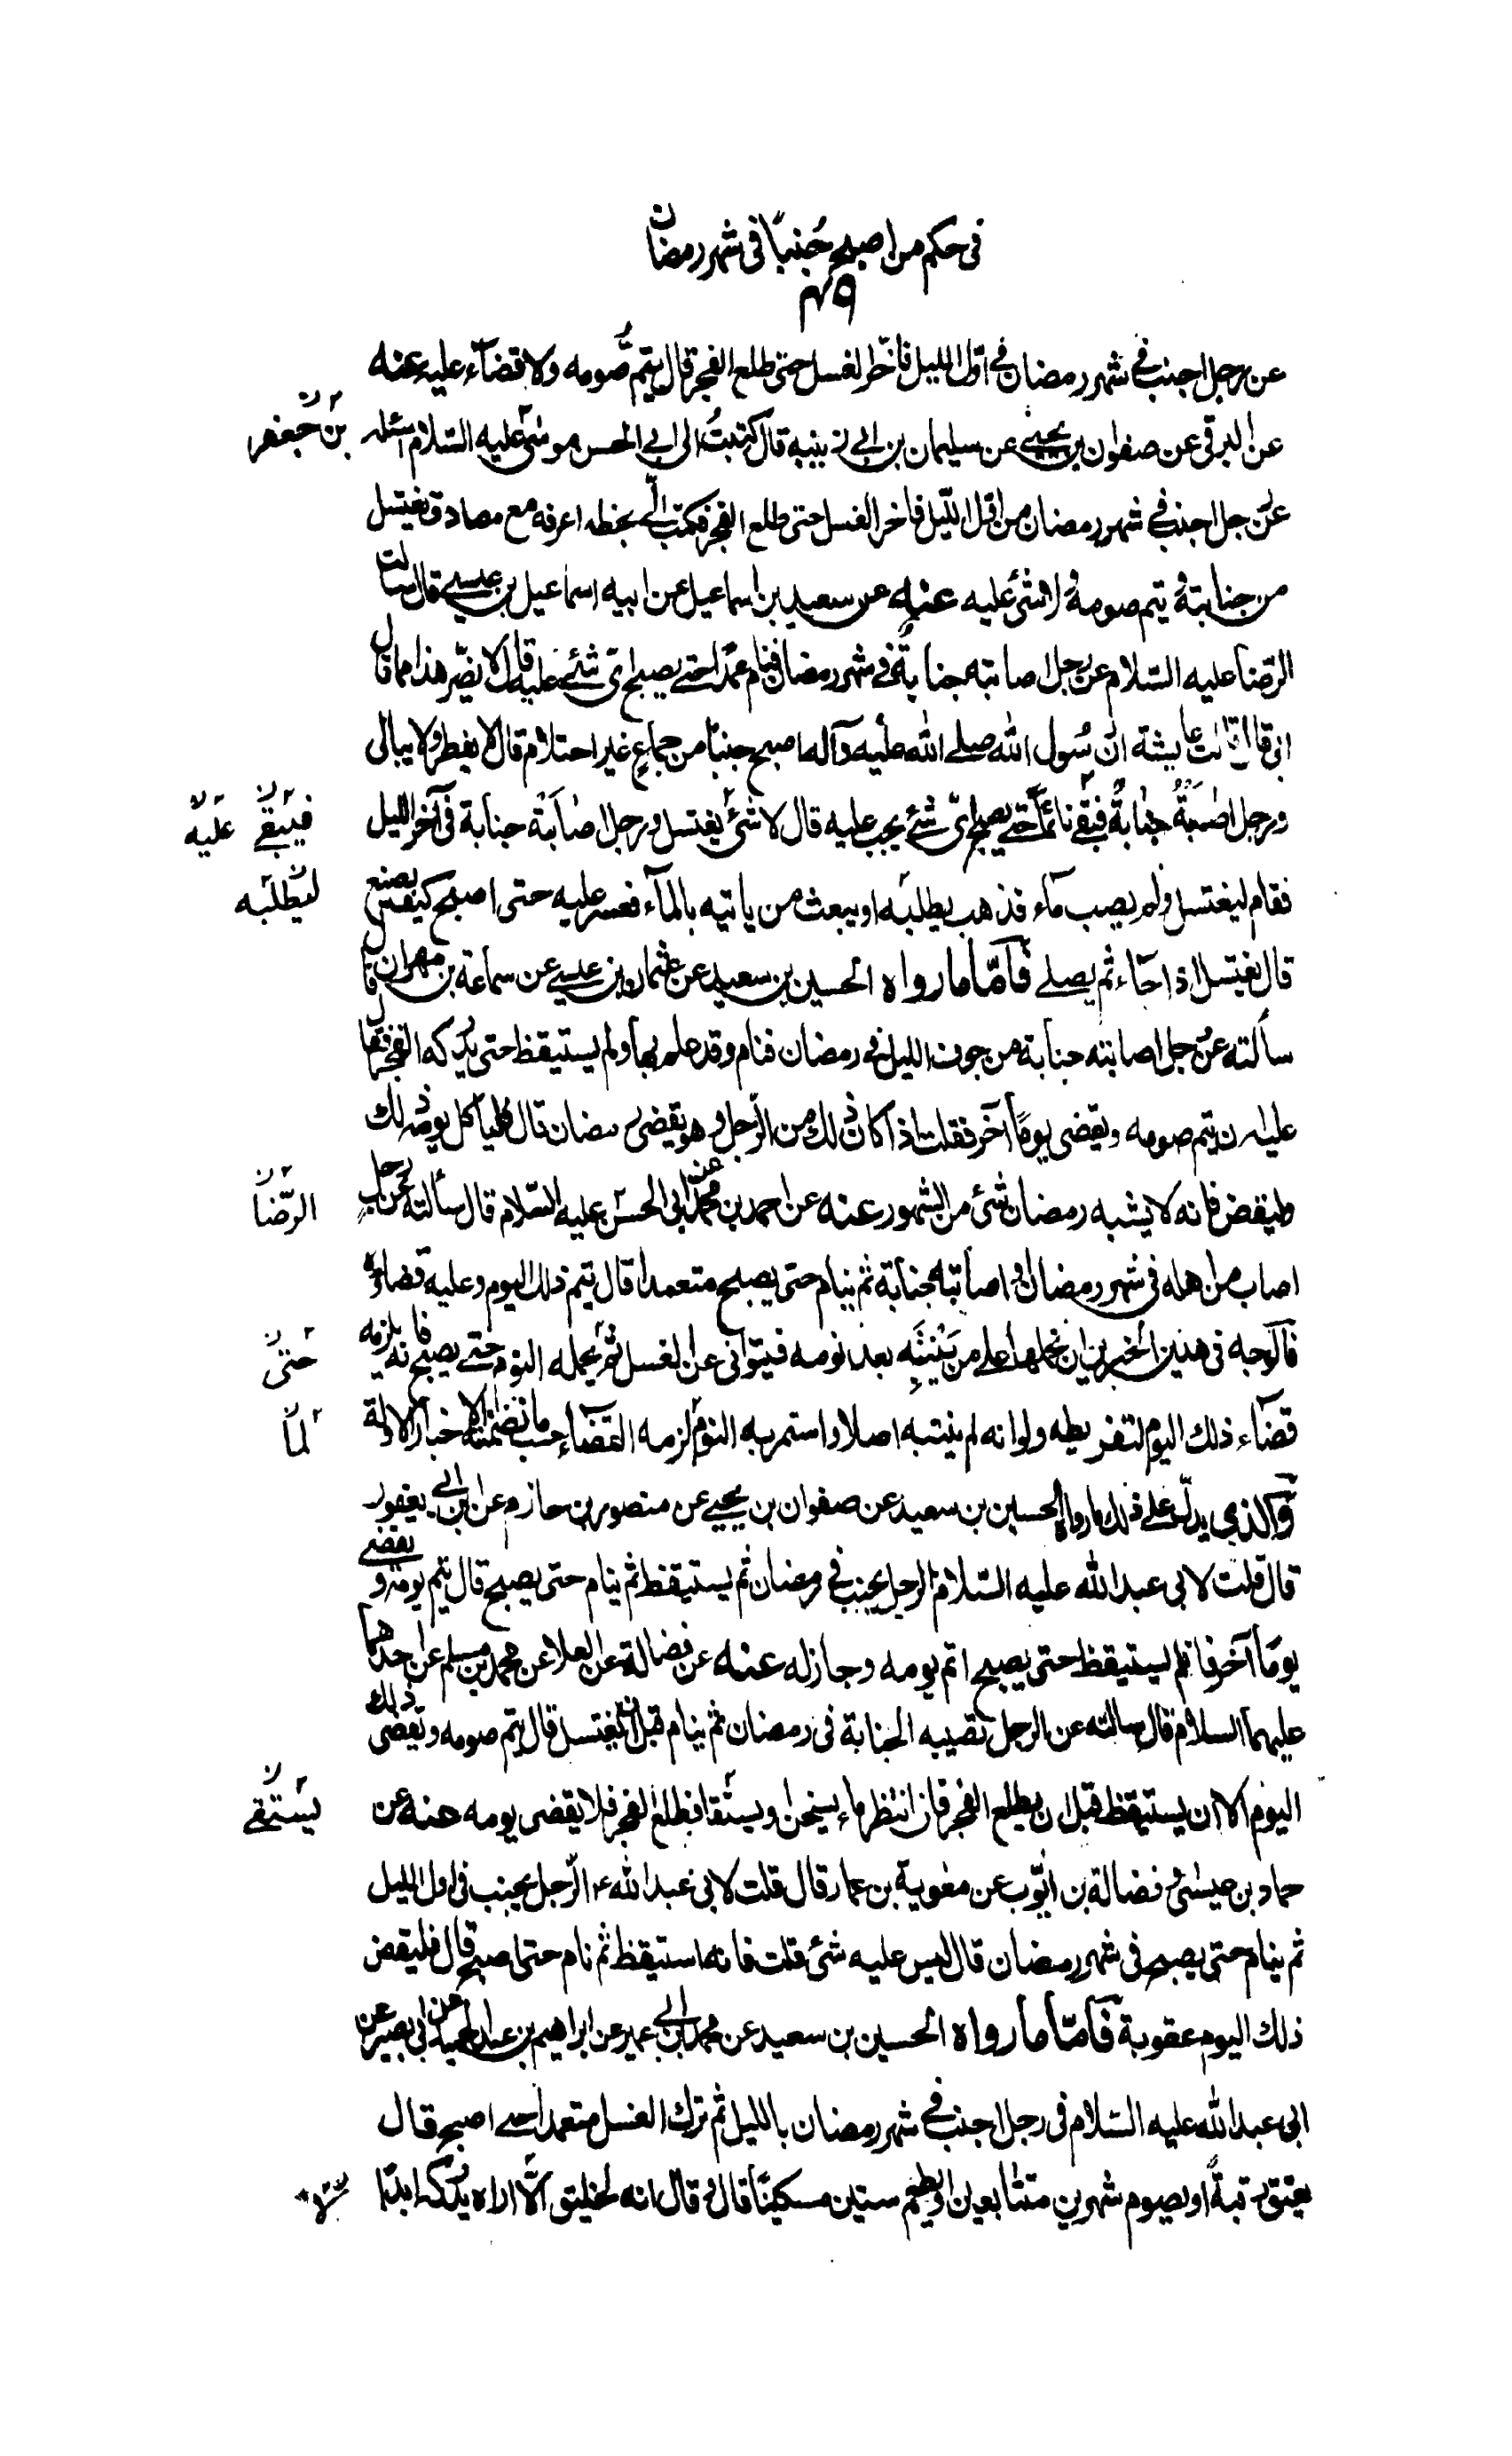 في حكم من اصبح جُنباً في شهر رمضان
٤٩
عن رجل اجنب في شهر رمضان في اوّل الليل فاخّر الغسل حتى طلع الفجر قال يتمّ صومه ولا قضاء عليه عنه
عن البرقي عن صفوان بن يحيى عن سليمان بن ابي زينبه قال كتبتُ الى ابي الحسن موسى عليه السّلام اسئله
بن جعفر
عن رجل اجنب في شهر رمضان من اوّل اللّيل فاخر الغسل حتى طلع الفجر فكتب اليّ بخطه اعرفه مع مصادف يغتسل
من جنابته ويتم صومه ولا شئ عليه عنه عن سعيد بن اسماعيل عن ابيه اسماعيل بن عيسى قال سالت
الرّضا عليه السّلام عن رجل اصابته جنابةٌ في شهر رمضان فنام عمداً حتى يصبح اىّ شئ عليه قال لا يضرّ هذا مما قال
ابي قالت عايشة انّ رسول الله صلى الله عليه وآله اصبح جنباً من جماعٍ غير احتلام قال لا يفطر ولا يبالى
ورجل اصابته جنابةٌ فبقى نائماً حتى يصبح اىّ شئ يجب عليه قال لا شئ يغتسل ورجل اصابته جنابة في آخر الليل
فيبقى عليه
فقام ليغتسل ولم يصب ماء فذهب يطلبه او يبعث من ياتيه بالمآء فعسر عليه حتى اصبح كيف يصنع
ليطلبه
قال يغتسل اذا جاء ثم يصلى فأمّا ما رواه الحسين بن سعيد عن عثمان بن عيسى عن سماعة بن مهران قال
سألته عن رجل اصابته جنابة من جوف الليل في رمضان فنام وقد علم بها ولم يستيقظ حتى يدركه الفجر فقال
عليه ان يتم صومه ويقضى يوماً آخر فقلت اذا كان ذلك من الرّجل وهو يقضى رمضان قال فلياكل يومه ذلك
وليقض فانه لا يشبه رمضان شئ من الشهور عنه عن احمد بن محمّد عن ابي الحسن عليه السّلام قال سألته عن رجلٍ
الرّضا
اصاب من اهله في شهر رمضان او اصابته جنابة ثم ينام حتى يصبح متعمدا قال يتم ذلك اليوم وعليه قضاؤه
فالوجه في هذين الخبرين ان نحملها على من ينتبه بعد نومه فيتوانى عن الغسل ثم يحمله النوم حتى يصبح فانه يلزمه
حتى
قضآء ذلك اليوم لتفريطه ولو انه لم ينتبه اصلا واستمر به النوم لزمه القضاء حسب ما تضمنته الاخبار الاولة
لما
والذي يدلّ على ذلك ما رواه الحسين بن سعيد عن صفوان بن يحيى عن منصور بن حازم عن ابن ابي يعفور
قال قلت لابي عبد الله عليه السّلام الرجل يجنب في رمضان ثم يستيقظ ثم ينام حتى يصبح قال يتم يومه ويقضى
يوماً آخر فان لم يستيقظ حتى يصبح اتم يومه وجاز له عنه عن فضالة عن العلا عن محمد بن مسلم عن احدهما
عليهما السلام قال سالته عن الرجل تصيبه الجنابة في رمضان ثم ينام قبل ان يغتسل قال يتم صومه ويقضى ذلك
اليوم الا ان يستيقظ قبل ان يطلع الفجر فان انتظر ماء يسخن او يستقا فطلع الفجر فلا يقضى يومه عنه عن
يستقى
حماد بن عيسى وفضالة بن ايّوب عن معوية بن عمار قال قلت لابي عبد الله ع الرّجل يجنب في اول الليل
ثم ينام حتى يصبح في شهر رمضان قال ليس عليه شئ قلت فانه استيقظ ثم نام حتى اصبح قال فليقض
ذلك اليوم عقوبة فأمّا ما رواه الحسين بن سعيد عن محمد بن ابي عمير عن ابراهيم بن عبد الحميد عن ابي بصير عن
ابي عبد الله عليه السّلام في رجل اجنب في شهر رمضان بالليل ثم ترك الغسل متعمدا حتى اصبح قال
يعتق رقبةً او يصوم شهرين متتابعين او يطعم ستين مسكيناً قال وقال انه لخليق الّا اراه يدركه ابداً